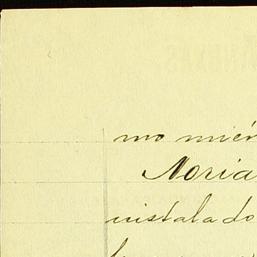 mo miér
Noria
instalado